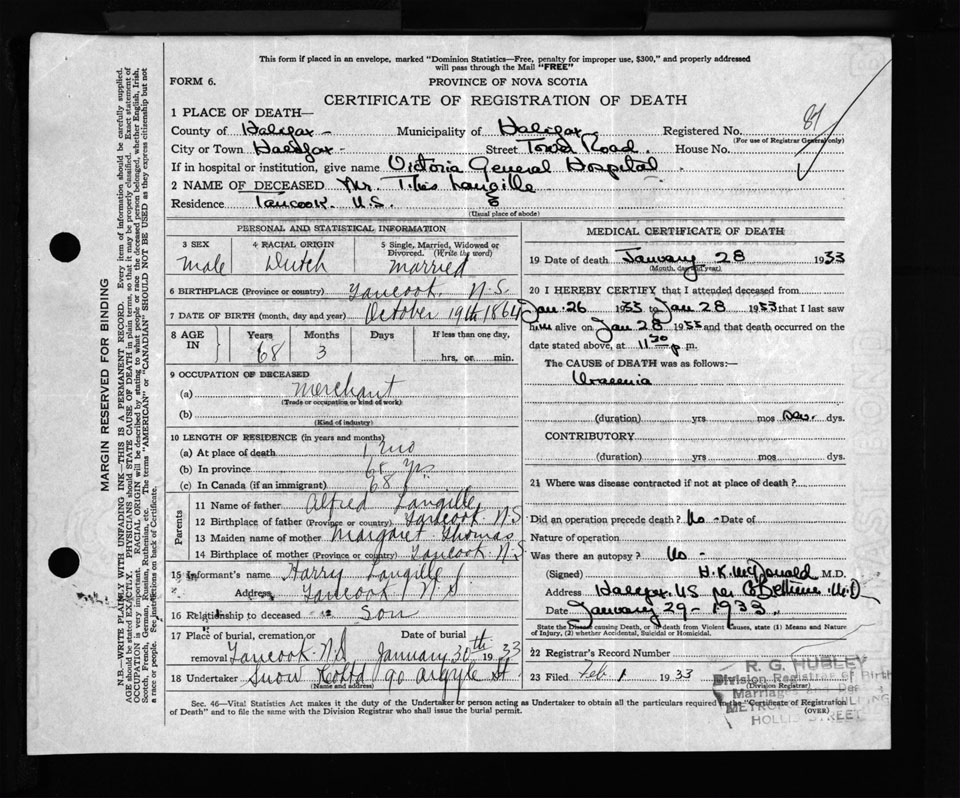 This form if placed in an envelope, marked "Dominion Statistics—Free, penalty for improper use, $300," and properly addressed
will pass through the Mail "FREE"
FORM 6.
PROVINCE OF NOVA SCOTIA
CERTIFICATE OF REGISTRATION OF DEATH
1 PLACE OF DEATH—
County of Halifax - Municipality of Halifax Registered No.
(For use of Registrar General only)
City or Town Halifax - Street Tower Road. House No.
If in hospital or institution, give name Victoria General Hospital
2 NAME OF DECEASED Mr. Titus Langille
Residence Tancook. N.S.
(Usual place of abode)
PERSONAL AND STATISTICAL INFORMATION
3 SEX 4 RACIAL ORIGIN 5 Single, Married, Widowed or
Divorced. (Write the word)
male Dutch married
6 BIRTHPLACE (Province or country) Tancook. N.S.
7 DATE OF BIRTH (month, day and year) October 19th 1864
8 AGE IN Years Months Days If less than one day,
68 3 hrs, or min.
9 OCCUPATION OF DECEASED
(a) merchant
(Trade or occupation or kind of work)
(b)
(Kind of industry)
10 LENGTH OF RESIDENCE (in years and months)
(a) At place of death 1 mo
(b) In province 68 yrs
(c) In Canada (if an immigrant) 68
Parents
11 Name of father Alfred Langille
12 Birthplace of father (Province or country) Tancook N.S
13 Maiden name of mother Margaret Thomas
14 Birthplace of mother (Province or country) Tancook N.S
15 Informant's name Harry Langille
Address Tancook N S
16 Relationship to deceased Son
17 Place of burial, cremation or Date of burial
removal Tancook N.S January 30th 1933
18 Undertaker Snow 90 Argyle St
(Name and address)
MEDICAL CERTIFICATE OF DEATH
19 Date of death January 28 1933
(Month, day and year)
20 I HEREBY CERTIFY that I attended deceased from
Jan. 26 1933 to Jan 28 1933 that I last saw
him alive on Jan 28 1933 and that death occurred on
date stated above, at 11 30 p m.
The CAUSE of DEATH was as follows:—
Uraemia
(duration) yrs mos dys.
CONTRIBUTORY
(duration) yrs mos dys.
21 Where was disease contracted if not at place of death?
Did an operation precede death? No - Date of
Nature of operation
Was there an autopsy? No -
(Signed) H.K. McDonald M.D.
Address Halifax, N.S per Bethune M.D
Date January 29 - 1933.
State the Disease causing Death, or in deaths from Violent Causes, state (1) Means and Nature
of Injury, (2) whether Accidental, Suicidal or Homicidal.
22 Registrar's Record Number
23 Filed Feb 1 1933
(Division Registrar)
R. G. HUBLEY
Division Registrar of Birth
Marriages and
HOLLIS STREET
Sec. 46—Vital Statistics Act makes it the duty of the Undertaker or person acting as Undertaker to obtain all the particulars required in the "Certificate of Registration
of Death" and to file the same with the Division Registrar who shall issue the burial permit. (OVER)
MARGIN RESERVED FOR BINDING
N.B.—WRITE PLAINLY WITH UNFADING INK—THIS IS A PERMANENT RECORD. Every item of information should be carefully supplied.
AGE should be stated EXACTLY. PHYSICIANS should STATE CAUSE OF DEATH in plain terms, so that it may be properly classified. Exact statement of
OCCUPATION is very important. RACIAL ORIGIN will be described by stating to what people or race the deceased person belonged, whether English, Irish,
Scotch, French, German, Russian, Ruthenian, etc. The terms "AMERICAN" or "CANADIAN" SHOULD NOT BE USED as they express citizenship but not
a race or people. See instructions on back of Certificate.